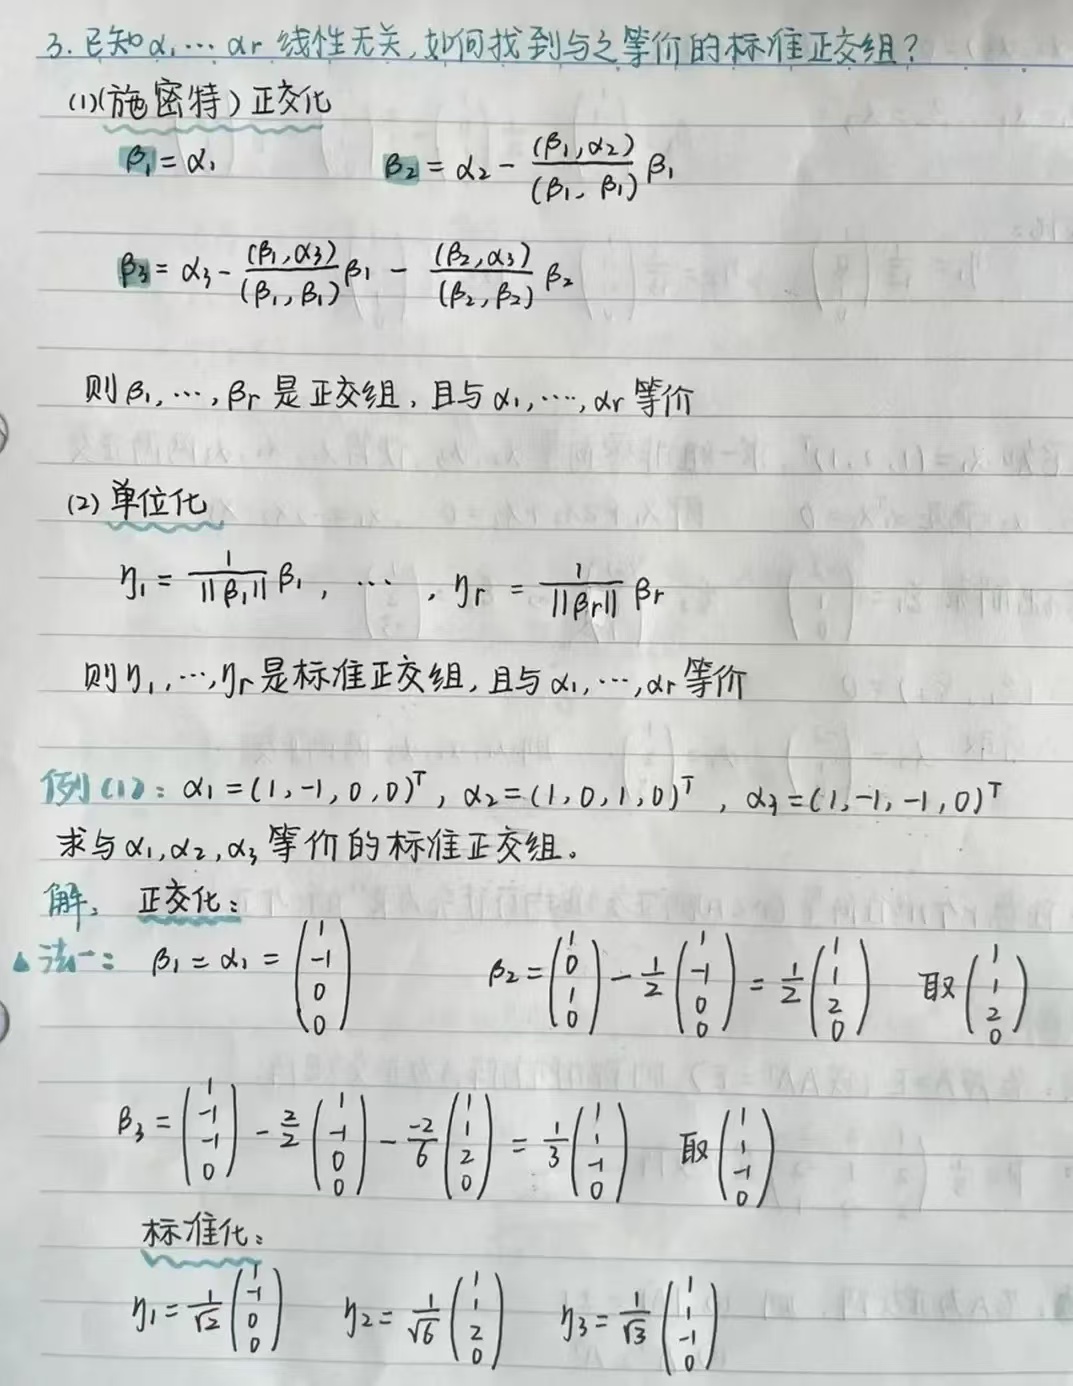 3. 已知α₁…αr 线性无关,如何找到与之等价的标准正交组?
(1)(施密特)正交化
β₁=α₁  β₂=α₂-\frac{(β₁,α₂)}{(β₁,β₁)}β₁
β₃=α₃-\frac{(β₁,α₃)}{(β₁,β₁)}β₁-\frac{(β₂,α₃)}{(β₂,β₂)}β₂
则β₁,…,βr是正交组,且与α₁,…,αr等价
(2)单位化
η₁=\frac{1}{||β₁||}β₁, … ,ηr=\frac{1}{||βr||}βr
则η₁,…,ηr是标准正交组,且与α₁,…,αr等价
例(1):α₁=(1,-1,0,0)ᵀ,α₂=(1,0,1,0)ᵀ,α₃=(1,-1,-1,0)ᵀ
求与α₁,α₂,α₃等价的标准正交组。
解:正交化:
▲法一:β₁=α₁=\begin{pmatrix}1\\-1\\0\\0\end{pmatrix}  β₂=\begin{pmatrix}1\\0\\1\\0\end{pmatrix}-\frac{1}{2}\begin{pmatrix}1\\-1\\0\\0\end{pmatrix}=\frac{1}{2}\begin{pmatrix}1\\1\\2\\0\end{pmatrix} 取\begin{pmatrix}1\\1\\2\\0\end{pmatrix}
β₃=\begin{pmatrix}1\\-1\\-1\\0\end{pmatrix}-\frac{2}{2}\begin{pmatrix}1\\-1\\0\\0\end{pmatrix}-\frac{-2}{6}\begin{pmatrix}1\\1\\2\\0\end{pmatrix}=\frac{1}{3}\begin{pmatrix}1\\1\\-1\\0\end{pmatrix} 取\begin{pmatrix}1\\1\\-1\\0\end{pmatrix}
标准化:
η₁=\frac{1}{\sqrt{2}}\begin{pmatrix}1\\-1\\0\\0\end{pmatrix}  η₂=\frac{1}{\sqrt{6}}\begin{pmatrix}1\\1\\2\\0\end{pmatrix}  η₃=\frac{1}{\sqrt{3}}\begin{pmatrix}1\\1\\-1\\0\end{pmatrix}